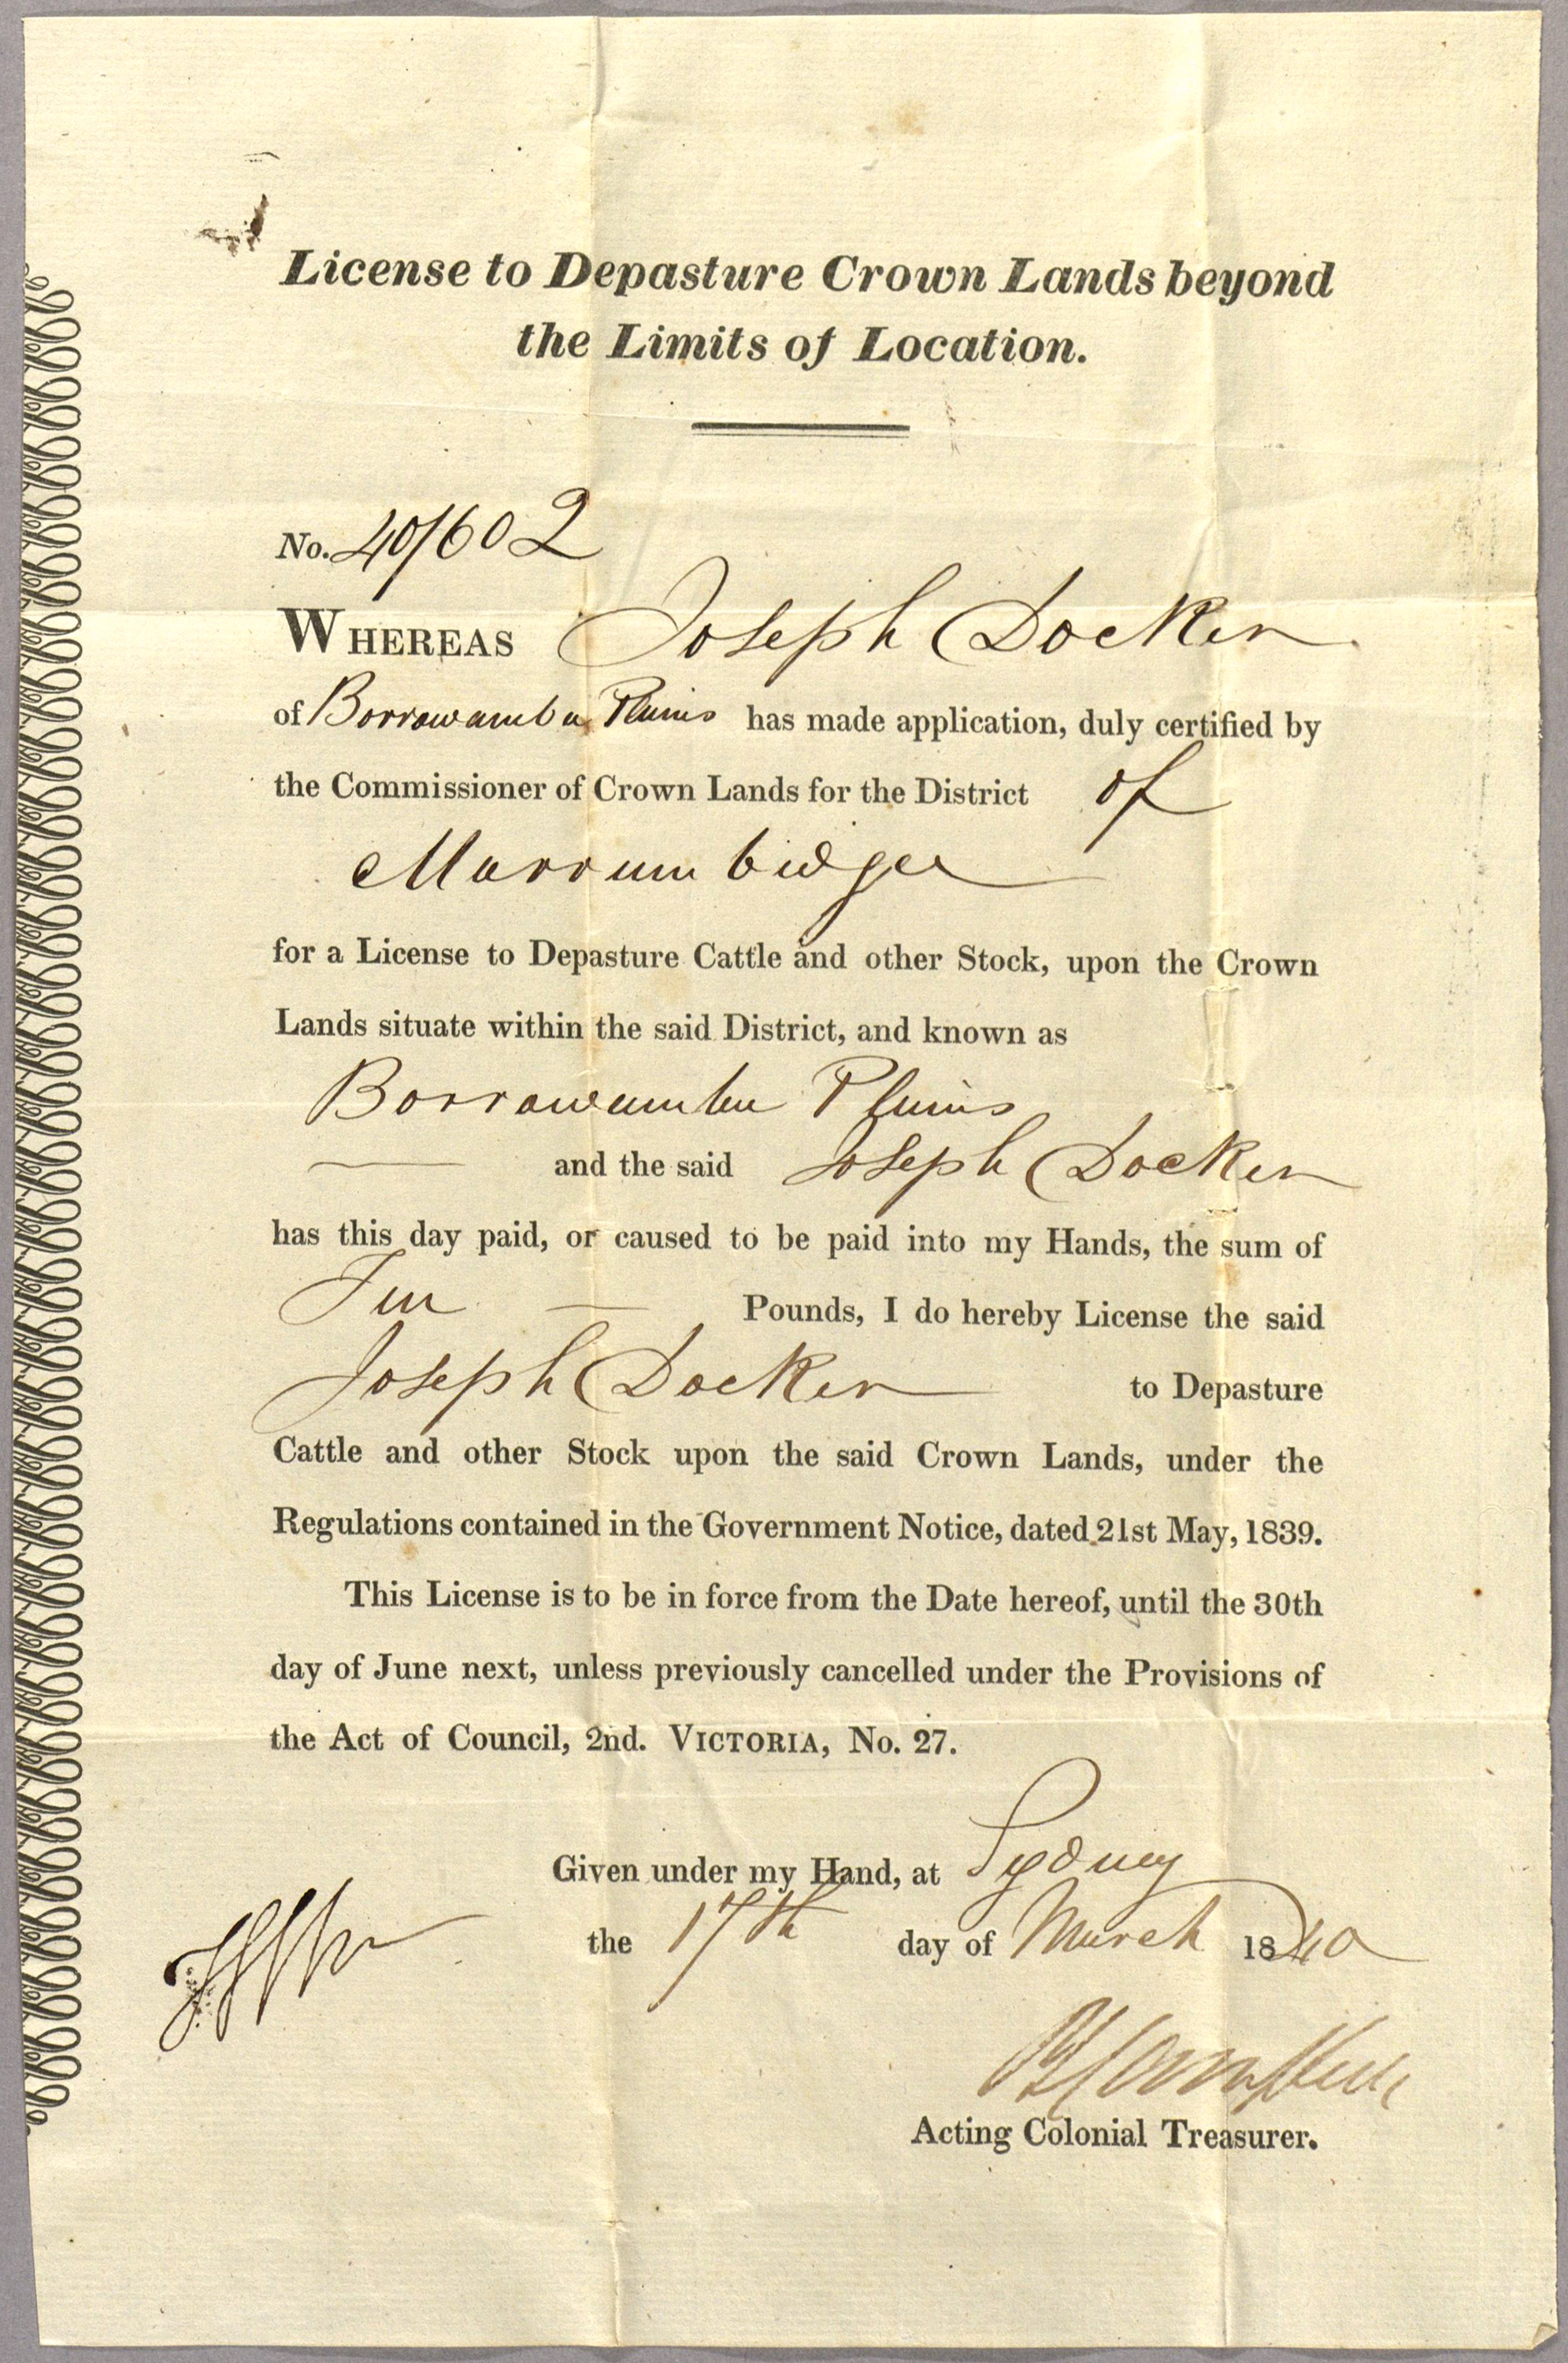 License to Depasture Crown Lands beyond
the Limits of Location.
No. 40/602
WHEREAS Joseph Docker
of Borrowamba Plains has made application, duly certified by
the Commissioner of Crown Lands for the District of
Murrumbidgee
for a License to Depasture Cattle and other Stock, upon the Crown
Lands situate within the said District, and known as
Borrowamba Plains
and the said Joseph Docker
has this day paid, or caused to be paid into my Hands, the sum of
Ten Pounds, I do hereby License the said
Joseph Docker to Depasture
Cattle and other Stock upon the said Crown Lands, under the
Regulations contained in the Government Notice, dated 21st May, 1839.
This License is to be in force from the Date hereof, until the 30th
day of June next, unless previously cancelled under the Provisions of
the Act of Council, 2nd. VICTORIA, No. 27.
Given under my Hand, at Sydney
the 17th day of March 1840
Acting Colonial Treasurer.